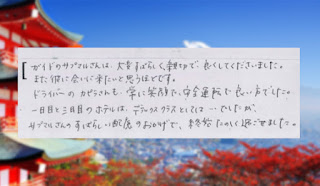 ガイドのサプマルさんは、大変すばらしく、親切で、良くしてくださいました。
また彼に会いに来たいと思うほどです。
ドライバーのカピラさんも、常に笑顔で、安全運転で良い方でした。
一日目と三日目のホテルは、デラックスクラスとしては でしたが、
サプマルさんのすばらしい配慮のおかげで、終始たのしく過ごせました。